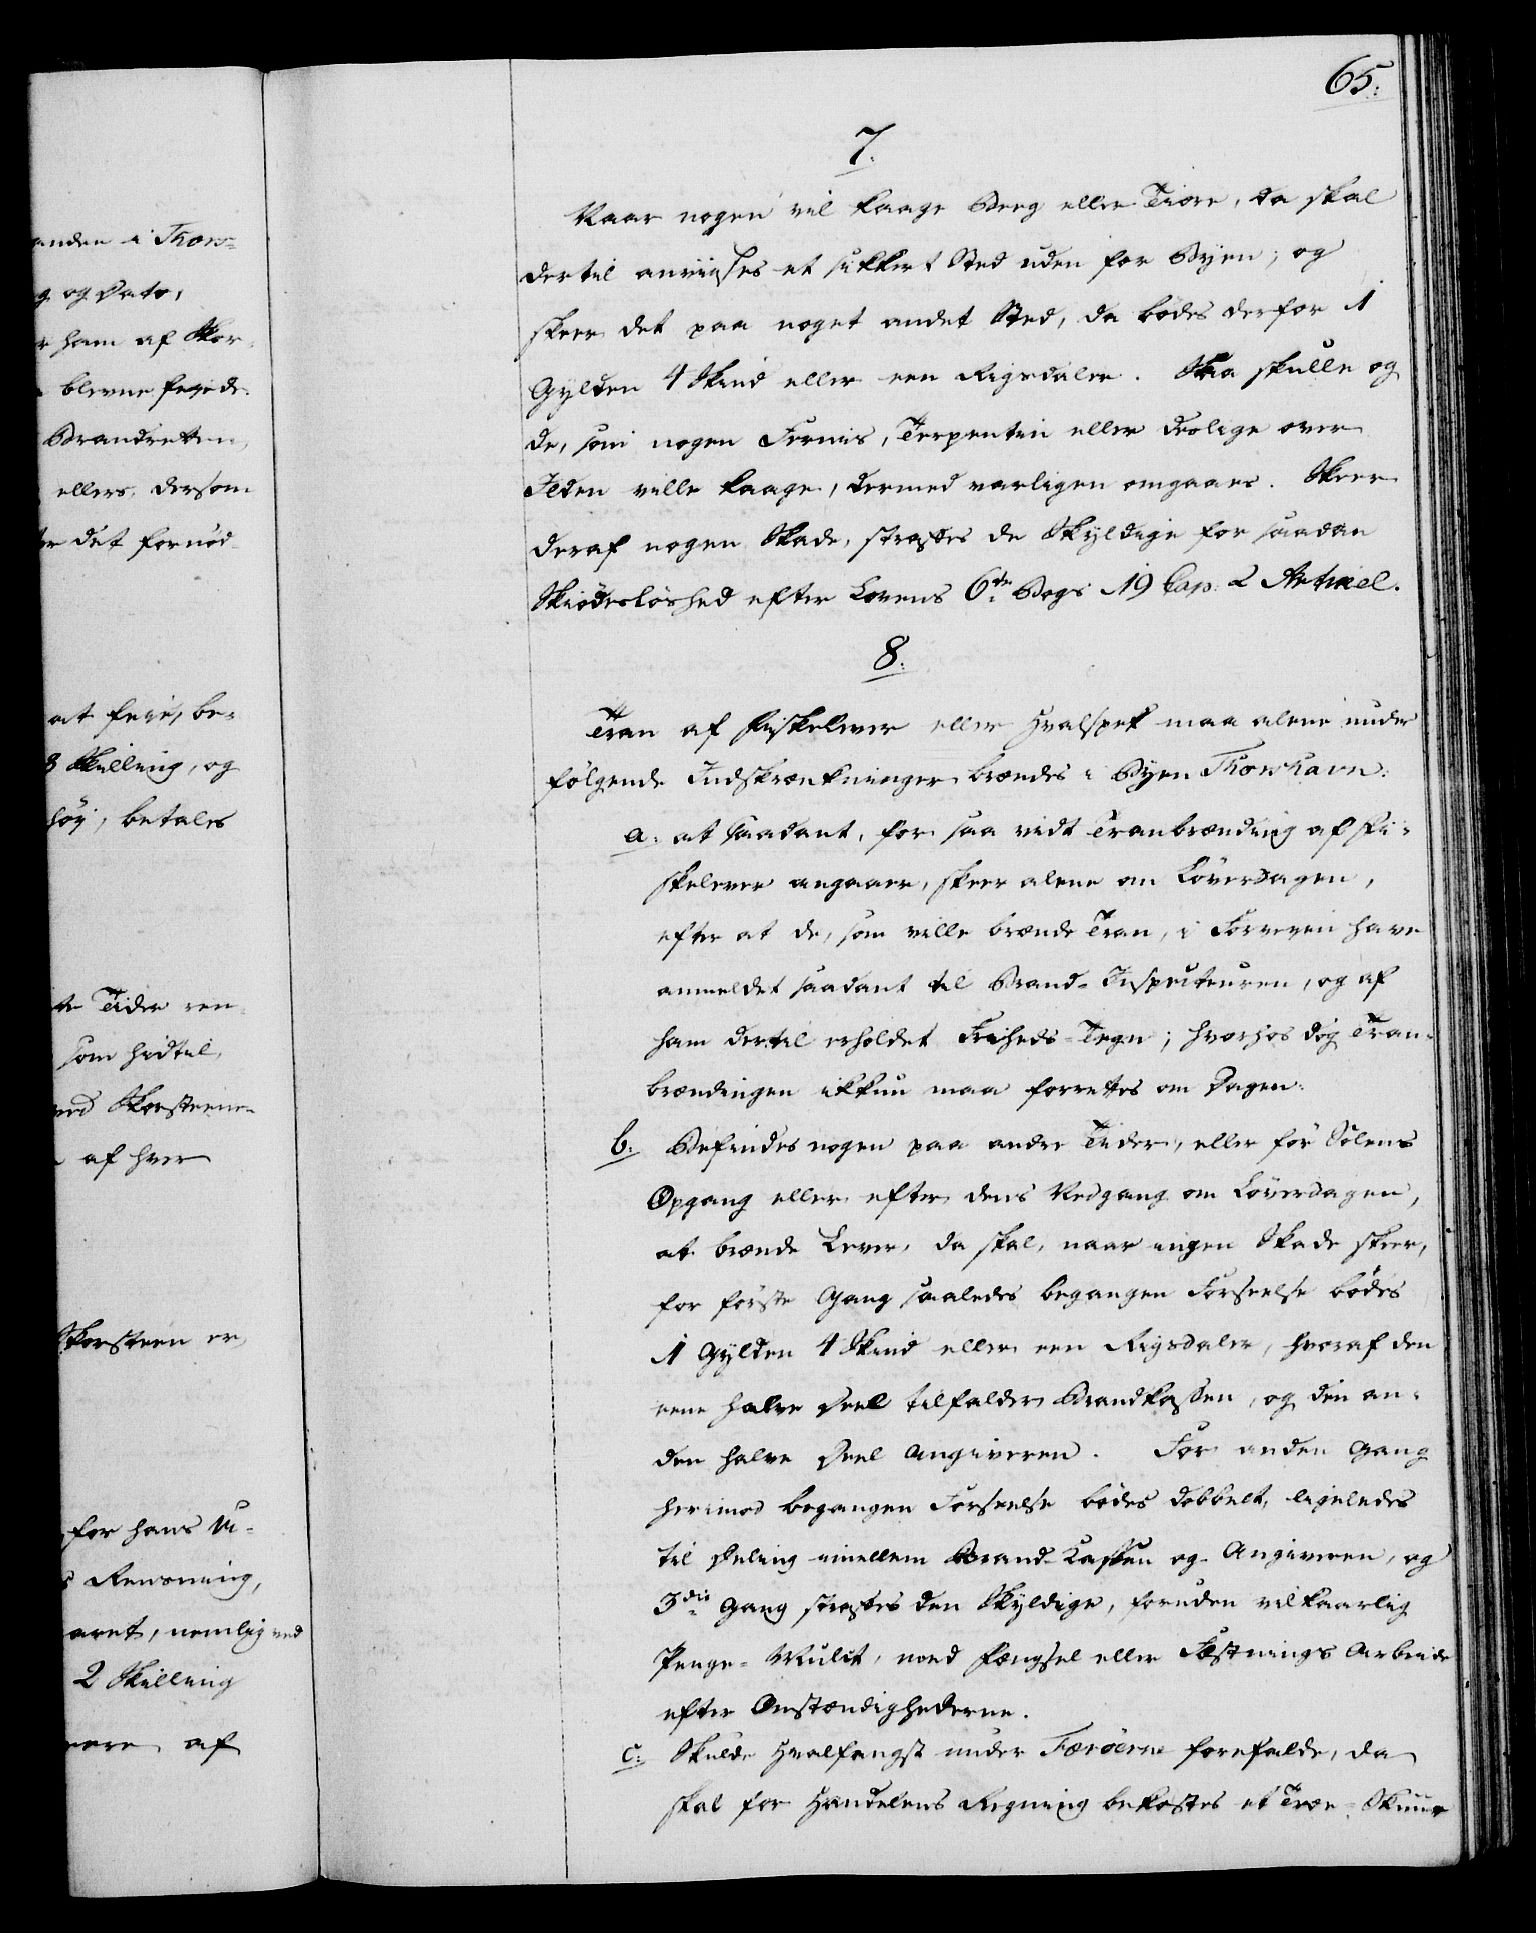 65.
7.
Naar nogen vil kaage Beeg eller Tiære, da skal
dertil anviises et sikkert Sted uden for Byen; og
skeer det paa noget andet Sted, da bødes derfor 1
Gylden 4 Skind eller een Rigsdaler. Saa skulle og
de, som nogen Fernis, Terpentin eller deslige over
Ilden ville kaage, dermed varligen omgaaes. Skeer
deraf nogen Skade, straffes de Skyldige for saadan
Skiødesløshed efter Lovens 6te Bogs 19 Cap. 2 Artikel.
8.
Tran af Fiskelever eller Hvalspek maa alene under
følgende Indskrænkninger brændes i Byen Thorshavn:
a. at saadant, for saa vidt Tranbrænding af Fi-
skelever angaaer, skeer alene om Løverdagen,
efter at de, som ville brænde Tran, i Forveien have
anmeldet saadant til Brand-Inspecteuren, og af
ham dertil erholdet Friheds-Tegn; hvorhos dog Tran-
brændingen ikkun maa forrettes om Dagen.
b. Befindes nogen paa andre Tider, eller før Solens
Opgang eller efter dens Nedgang om Løverdagen,
at brænde Lever, da skal, naar ingen Skade skeer,
for første Gang saaledes begangen Forseelse bødes
1 Gylden 4 Skind eller een Rigsdaler, hvoraf den
eene halve Deel tilfalder Brandkassen, og den an-
den halve Deel Angiveren. For anden Gang
herimod begangen Forseelse bødes dobbelt, ligeledes
til Deling imellem Brand-Cassen og Angiveren, og
3die Gang straffes den Skyldige, foruden vilkaarlig
Penge-Mulct, med Fængsel eller Fæstnings Arbeide
efter Omstændighederne.
c. Skulde Hvalfangst under Færøerne forefalde, da
skal for Handelens Regning bekostes et Træe-Skuur
anden i Thors-
g og Dato,
r ham af Skor-
blevne feiede.
Brandretten,
ellers, dersom
er det fornød-
at feie, be-
8 Skilling, og
høi, betales
te Tider ren-
som hidtil,
ved Skorsteene-
af hver
Skorsteen er,
for hans U-
s Rensning,
aret, nemlig ved
2 Skilling
af